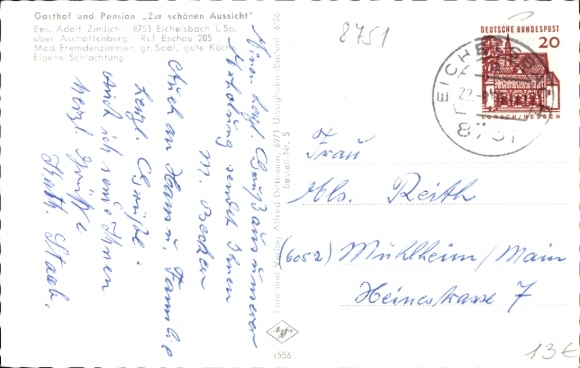 Gasthof und Pension „Zur schönen Aussicht"
Bes. Adolf Zimlich - 8751 Eichelsbach i. Sp.
über Aschaffenburg - Ruf Eschau 205
Mod. Fremdenzimmer, gr. Saal, gute Küche
Eigene Schlachtung
8751
DEUTSCHE BUNDESPOST
20
LORSCH/HESSEN
EICHELSBACH
8751
Frau
Reith
(6052) Mühlheim/Main
Heinestrasse 7
Gruß aus unserer
sendet Ihnen
M. Becker
Auch an Mann u. Familie
herzl. Grüße.
Auch ich sende Ihnen
herzl. Grüße
Kath. Staab.
Foto und Verlag Alfred
Bestell-Nr. 5
Agfa
1556
13€